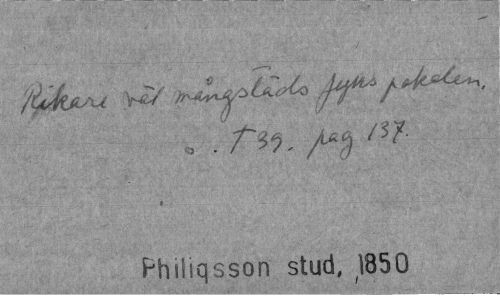 Rikare vät mångstäds fyks pokalen.
o. . T 39. pag 137.
Philiqsson stud, 1850